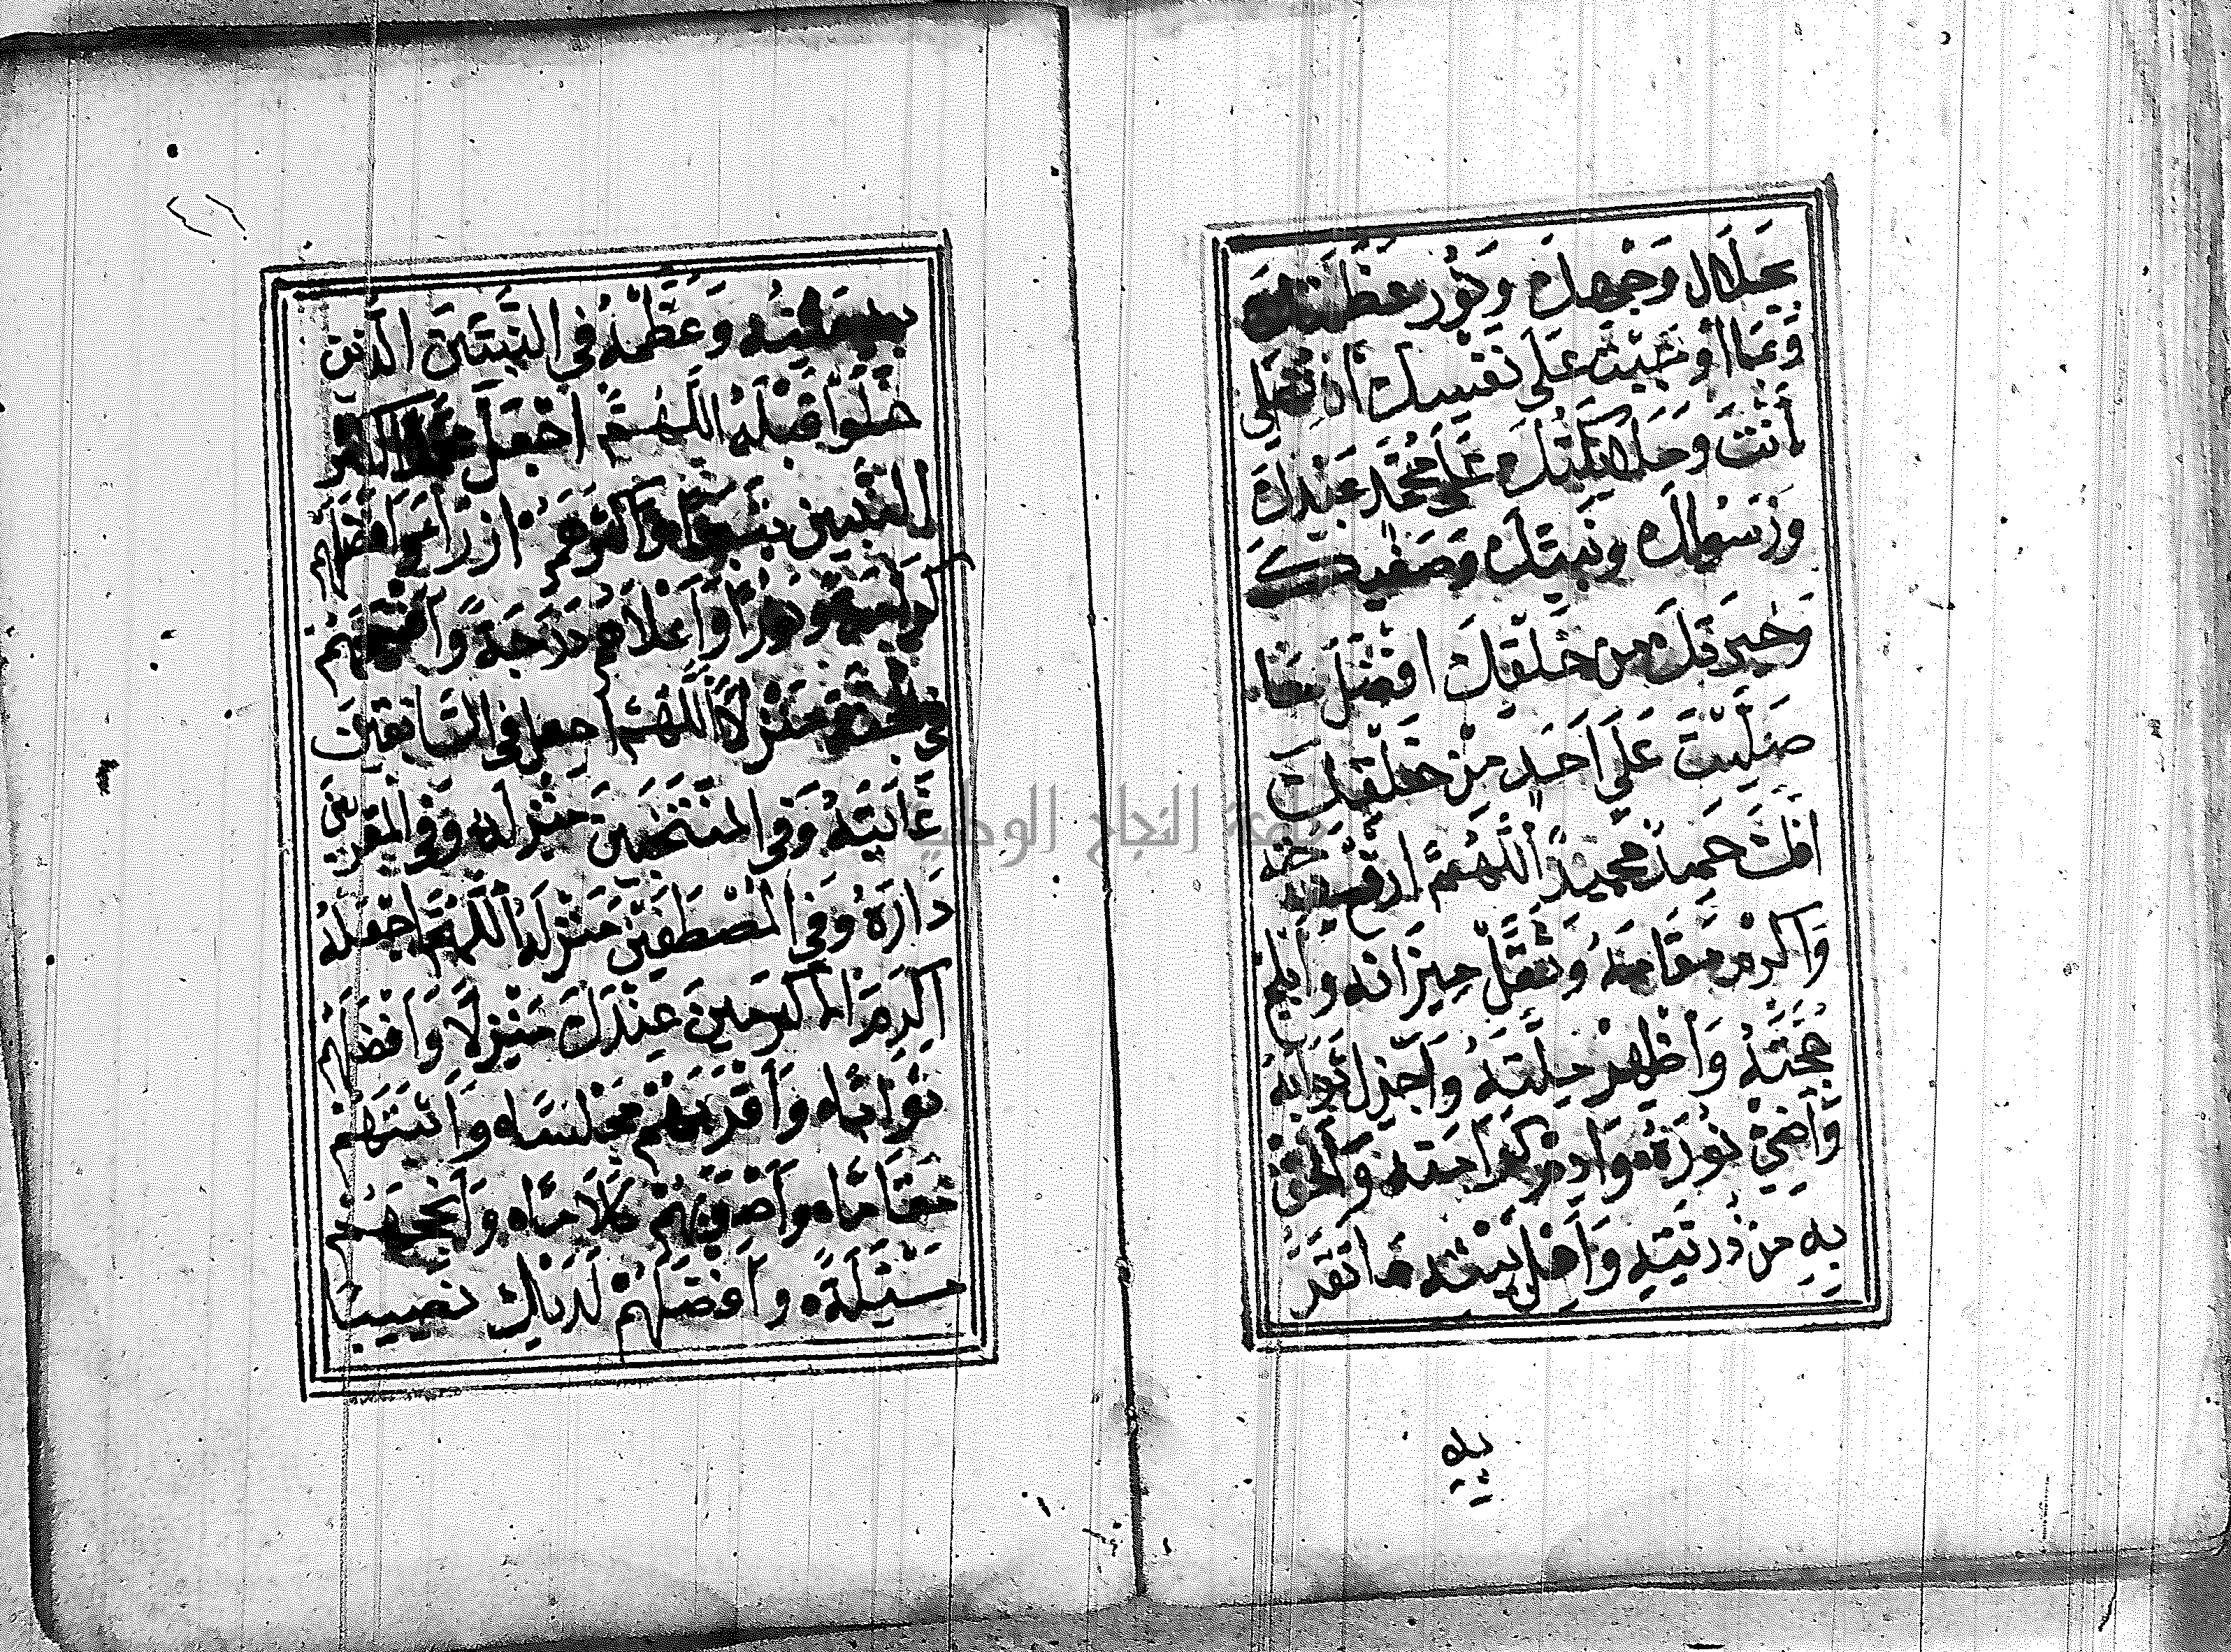 بِجَلَالِ وَجْهِكَ وَنُورِ عَظَمَتِكَ
وَبِمَا أَوْجَبْتَ عَلَى نَفْسِكَ أَنْ تُصَلِّي
أَنْتَ وَمَلَائِكَتُكَ عَلَى مُحَمَّدٍ عَبْدِكَ
وَرَسُولِكَ وَنَبِيِّكَ وَصَفِيِّكَ
وَخِيرَتِكَ مِنْ خَلْقِكَ اَفْضَلَ مَا
صَلَّيْتَ عَلَى اَحَدٍ مِنْ خَلْقِكَ
اِنَّكَ حَمِيدٌ مَجِيدٌ اَللّٰهُمَّ ارْفَعْ دَرَجَتَهُ
وَاَكْرِمْ مَقَامَهُ وَثَقِّلْ مِيزَانَهُ وَاَبْلِجْ
حُجَّتَهُ وَاَظْهِرْ مِلَّتَهُ وَاَجْزِلْ ثَوَابَهُ
وَاَضِئْ نُورَهُ وَاَدِمْ كَرَامَتَهُ وَاَلْحِقْ
بِهِ مِنْ ذُرِّيَّتِهِ وَاَهْلِ بَيْتِهِ مَا تَقَرُّ
بِهِ
بِهِ عَيْنُهُ وَعَظِّمْهُ فِي النَّبِيِّينَ الَّذِينَ
خَلَوْا قَبْلَهُ اَللّٰهُمَّ اجْعَلْ مُحَمَّدًا اَكْثَرَ
النَّبِيِّينَ تَبَعًا وَاَكْثَرَهُمْ اُزَرَآءَ وَاَفْضَلَهُمْ
كَرَامَةً وَنُورًا وَاَعْلَاهُمْ دَرَجَةً وَاَفْسَحَهُمْ
فِي الْجَنَّةِ مَنْزِلًا اَللّٰهُمَّ اجْعَلْ فِي السَّابِقِينَ
غَايَتَهُ وَفِي الْمُنْتَخَبِينَ مَنْزِلَهُ وَفِي الْمُقَرَّبِينَ
دَارَهُ وَفِي الْمُصْطَفَيْنَ مَنْزِلَهُ اَللّٰهُمَّ اجْعَلْهُ
اَكْرَمَ الْاَكْرَمِينَ عِنْدَكَ مَنْزِلًا وَاَفْضَلَهُمْ
ثَوَابًا وَاَقْرَبَهُمْ مَجْلِسًا وَاَثْبَتَهُمْ
مَقَامًا وَاَصْوَبَهُمْ كَلَامًا وَاَنْجَحَهُمْ
مَسْئَلَةً وَاَفْضَلَهُمْ لَدَيْكَ نَصِيبًا
جامعة النجاح الوطنية